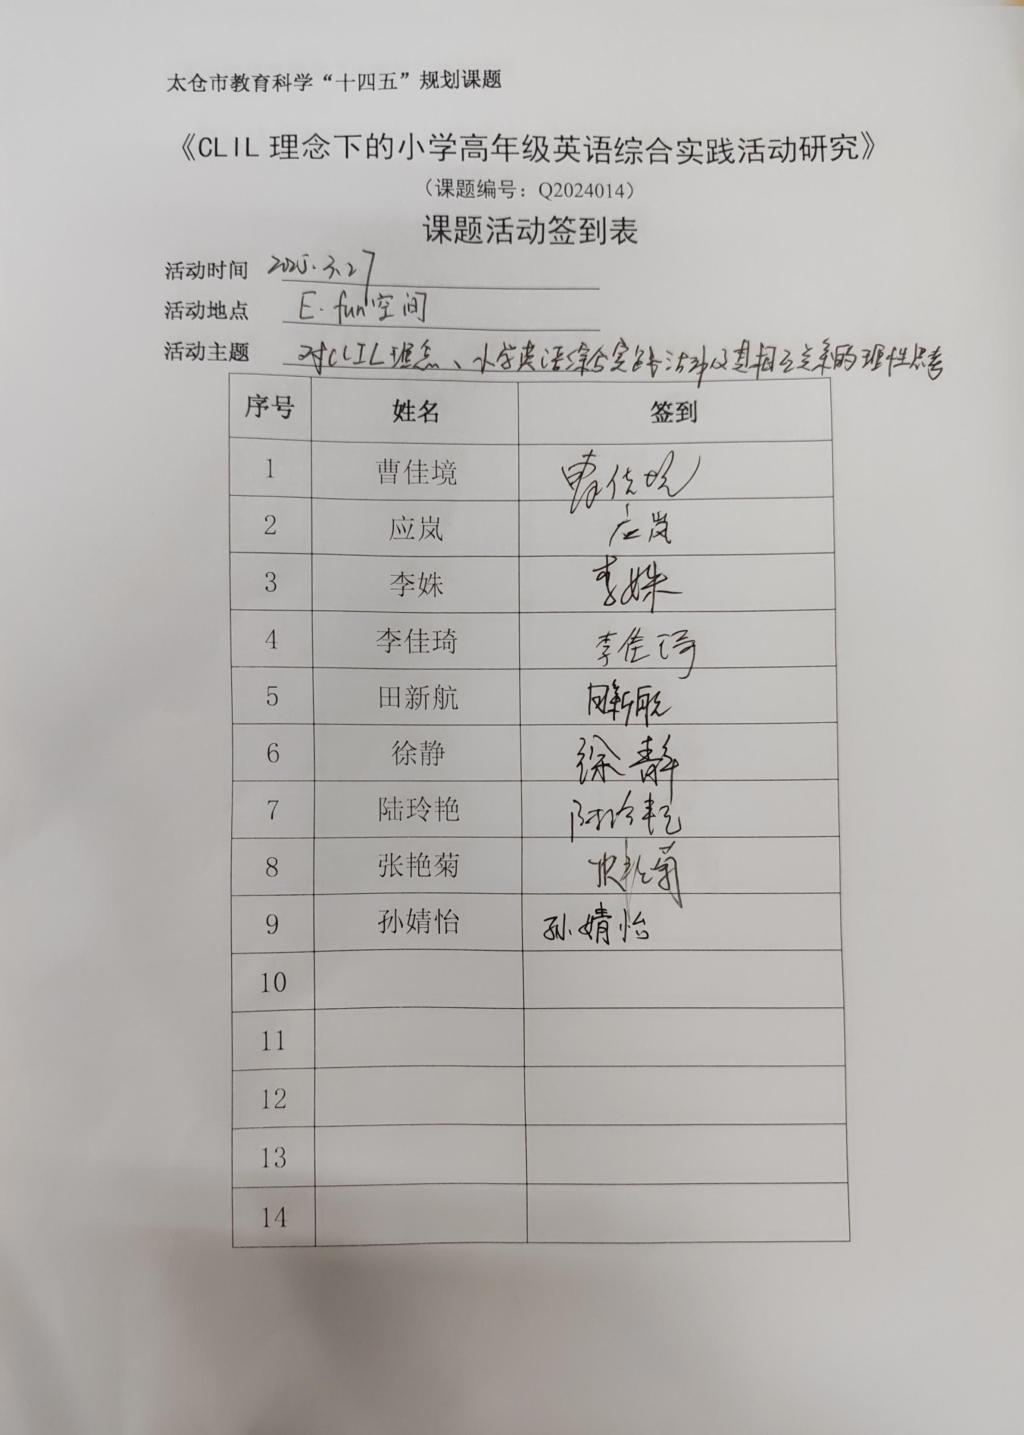 太仓市教育科学“十四五”规划课题
《CLIL 理念下的小学高年级英语综合实践活动研究》
（课题编号：Q2024014）
课题活动签到表
活动时间 2025.3.27
活动地点 E·fun空间
活动主题 对CLIL理念、小学英语综合实践活动及其相互关系的理性思考
序号 姓名 签到
1 曹佳境 曹佳境
2 应岚 应岚
3 李姝 李姝
4 李佳琦 李佳琦
5 田新航 田新航
6 徐静 徐静
7 陆玲艳 陆玲艳
8 张艳菊 张艳菊
9 孙婧怡 孙婧怡
10
11
12
13
14